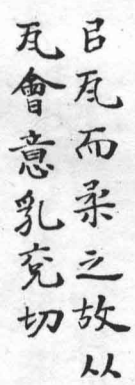 㠯瓦而柔之故从
瓦會意乳兗切